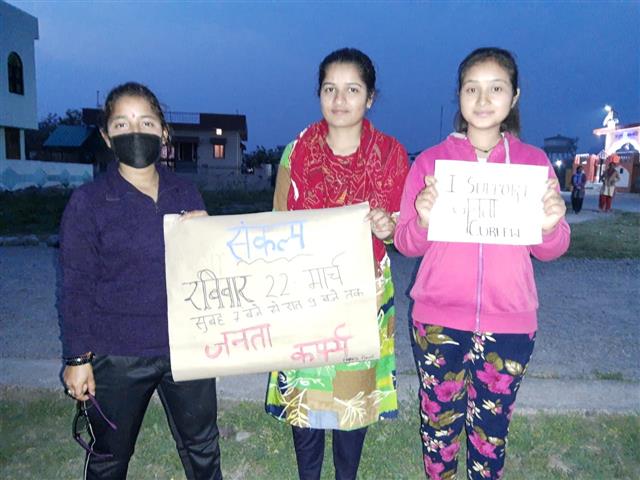 संकल्प
रविवार 22 मार्च
सुबह 7 बजे से रात 9 बजे तक
जनता कर्फ्यू
I SUPPORT
जनता
CURFEW